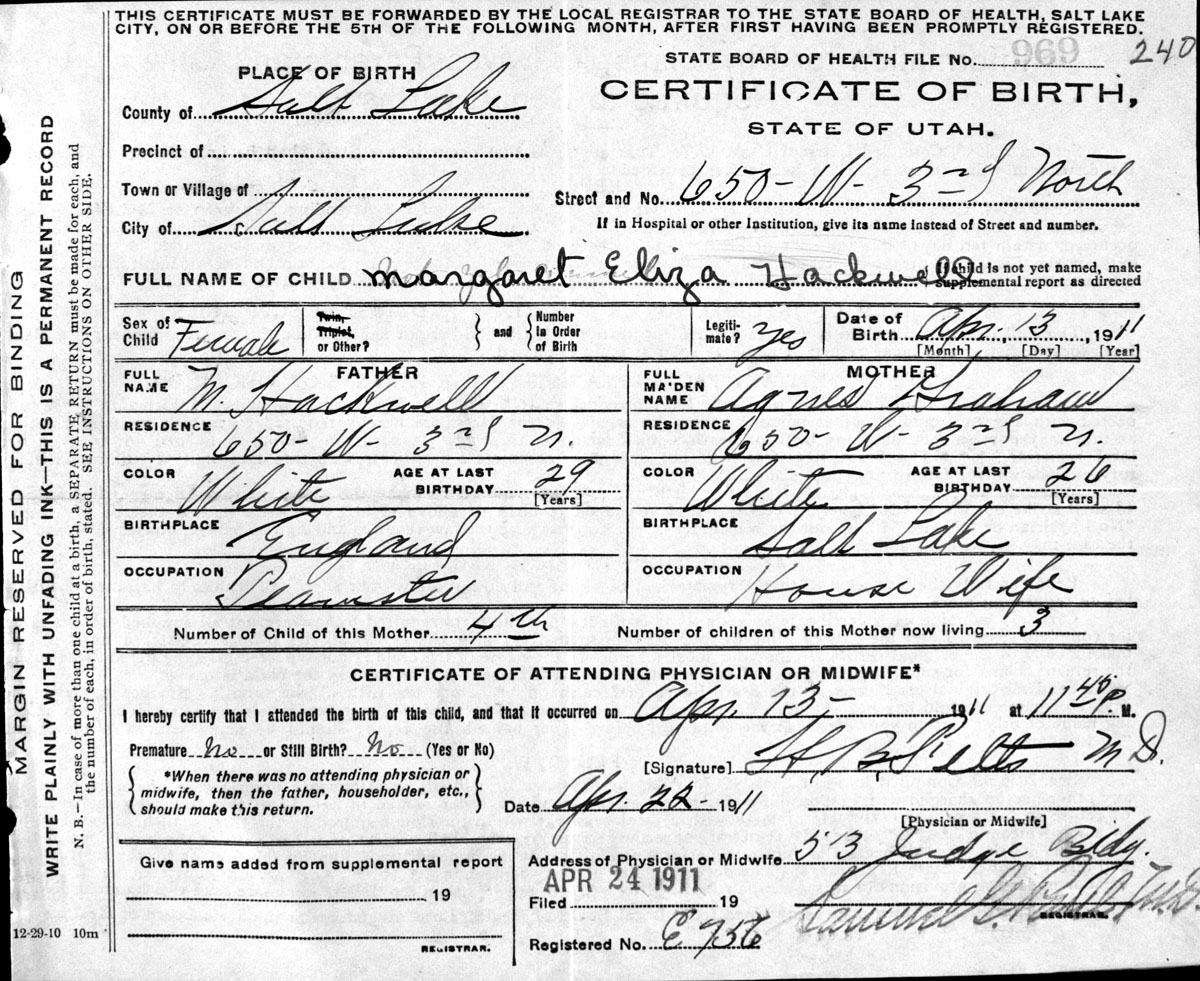 THIS CERTIFICATE MUST BE FORWARDED BY THE LOCAL REGISTRAR TO THE STATE BOARD OF HEALTH, SALT LAKE
CITY, ON OR BEFORE THE 5TH OF THE FOLLOWING MONTH, AFTER FIRST HAVING BEEN PROMPTLY REGISTERED.
240
STATE BOARD OF HEALTH FILE No. 969
CERTIFICATE OF BIRTH,
STATE OF UTAH.
PLACE OF BIRTH
County of Salt Lake
Precinct of
Town or Village of
City of Salt Lake
Street and No. 650 - W - 3rd North
If in Hospital or other Institution, give its name instead of Street and number.
FULL NAME OF CHILD Margaret Eliza Hackwell
If child is not yet named, make
supplemental report as directed
Sex of Child Female
Twin,
Triplet,
or Other?
and
Number
in Order
of Birth
Legiti-
mate? yes
Date of
Birth Apr. 13, 1911
[Month] [Day] [Year]
FATHER
FULL NAME M. Hackwell
RESIDENCE 650 - W - 3rd N.
COLOR White
AGE AT LAST BIRTHDAY 29
[Years]
BIRTHPLACE England
OCCUPATION Teamster
MOTHER
FULL MAIDEN NAME Agnes Graham
RESIDENCE 650 - W - 3rd N.
COLOR White
AGE AT LAST BIRTHDAY 26
[Years]
BIRTHPLACE Salt Lake
OCCUPATION House Wife
Number of Child of this Mother 4th
Number of children of this Mother now living 3
CERTIFICATE OF ATTENDING PHYSICIAN OR MIDWIFE*
I hereby certify that I attended the birth of this child, and that it occurred on Apr. 13 - 1911 at 11 40 P. M.
Premature No or Still Birth? No (Yes or No)
*When there was no attending physician or
midwife, then the father, householder, etc.,
should make this return.
[Signature] H. B. Felts M D.
Date Apr. 22 - 1911
[Physician or Midwife]
Address of Physician or Midwife 513 Judge Bldg.
Give name added from supplemental report
19
REGISTRAR.
APR 24 1911
Filed 19
Samuel G. M.D.
REGISTRAR.
Registered No. E 756
12-29-10 10m
MARGIN RESERVED FOR BINDING
WRITE PLAINLY WITH UNFADING INK—THIS IS A PERMANENT RECORD
N. B.—In case of more than one child at a birth, a SEPARATE RETURN must be made for each, and
the number of each, in order of birth, stated. SEE INSTRUCTIONS ON OTHER SIDE.